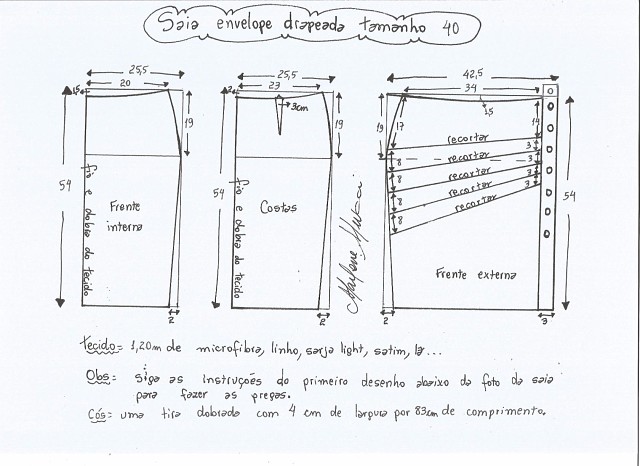 Saia envelope drapeada tamanho 40
25,5
20
1,5
19
54
Frente
interna
fio e dobra do tecido
2
25,5
23
2
3cm
19
54
Costas
fio e dobra do tecido
2
42,5
34
1,5
19
17
14
recortar
recortar
recortar
recortar
recortar
3
3
3
3
8
8
8
8
54
Frente externa
2
3
Tecido = 1,20m de microfibra, linho, sarja light, satim, lã...
Obs: Siga as instruções do primeiro desenho abaixo da foto da saia
para fazer as pregas.
Cós: uma tira dobrada com 4 cm de largura por 83cm de comprimento.